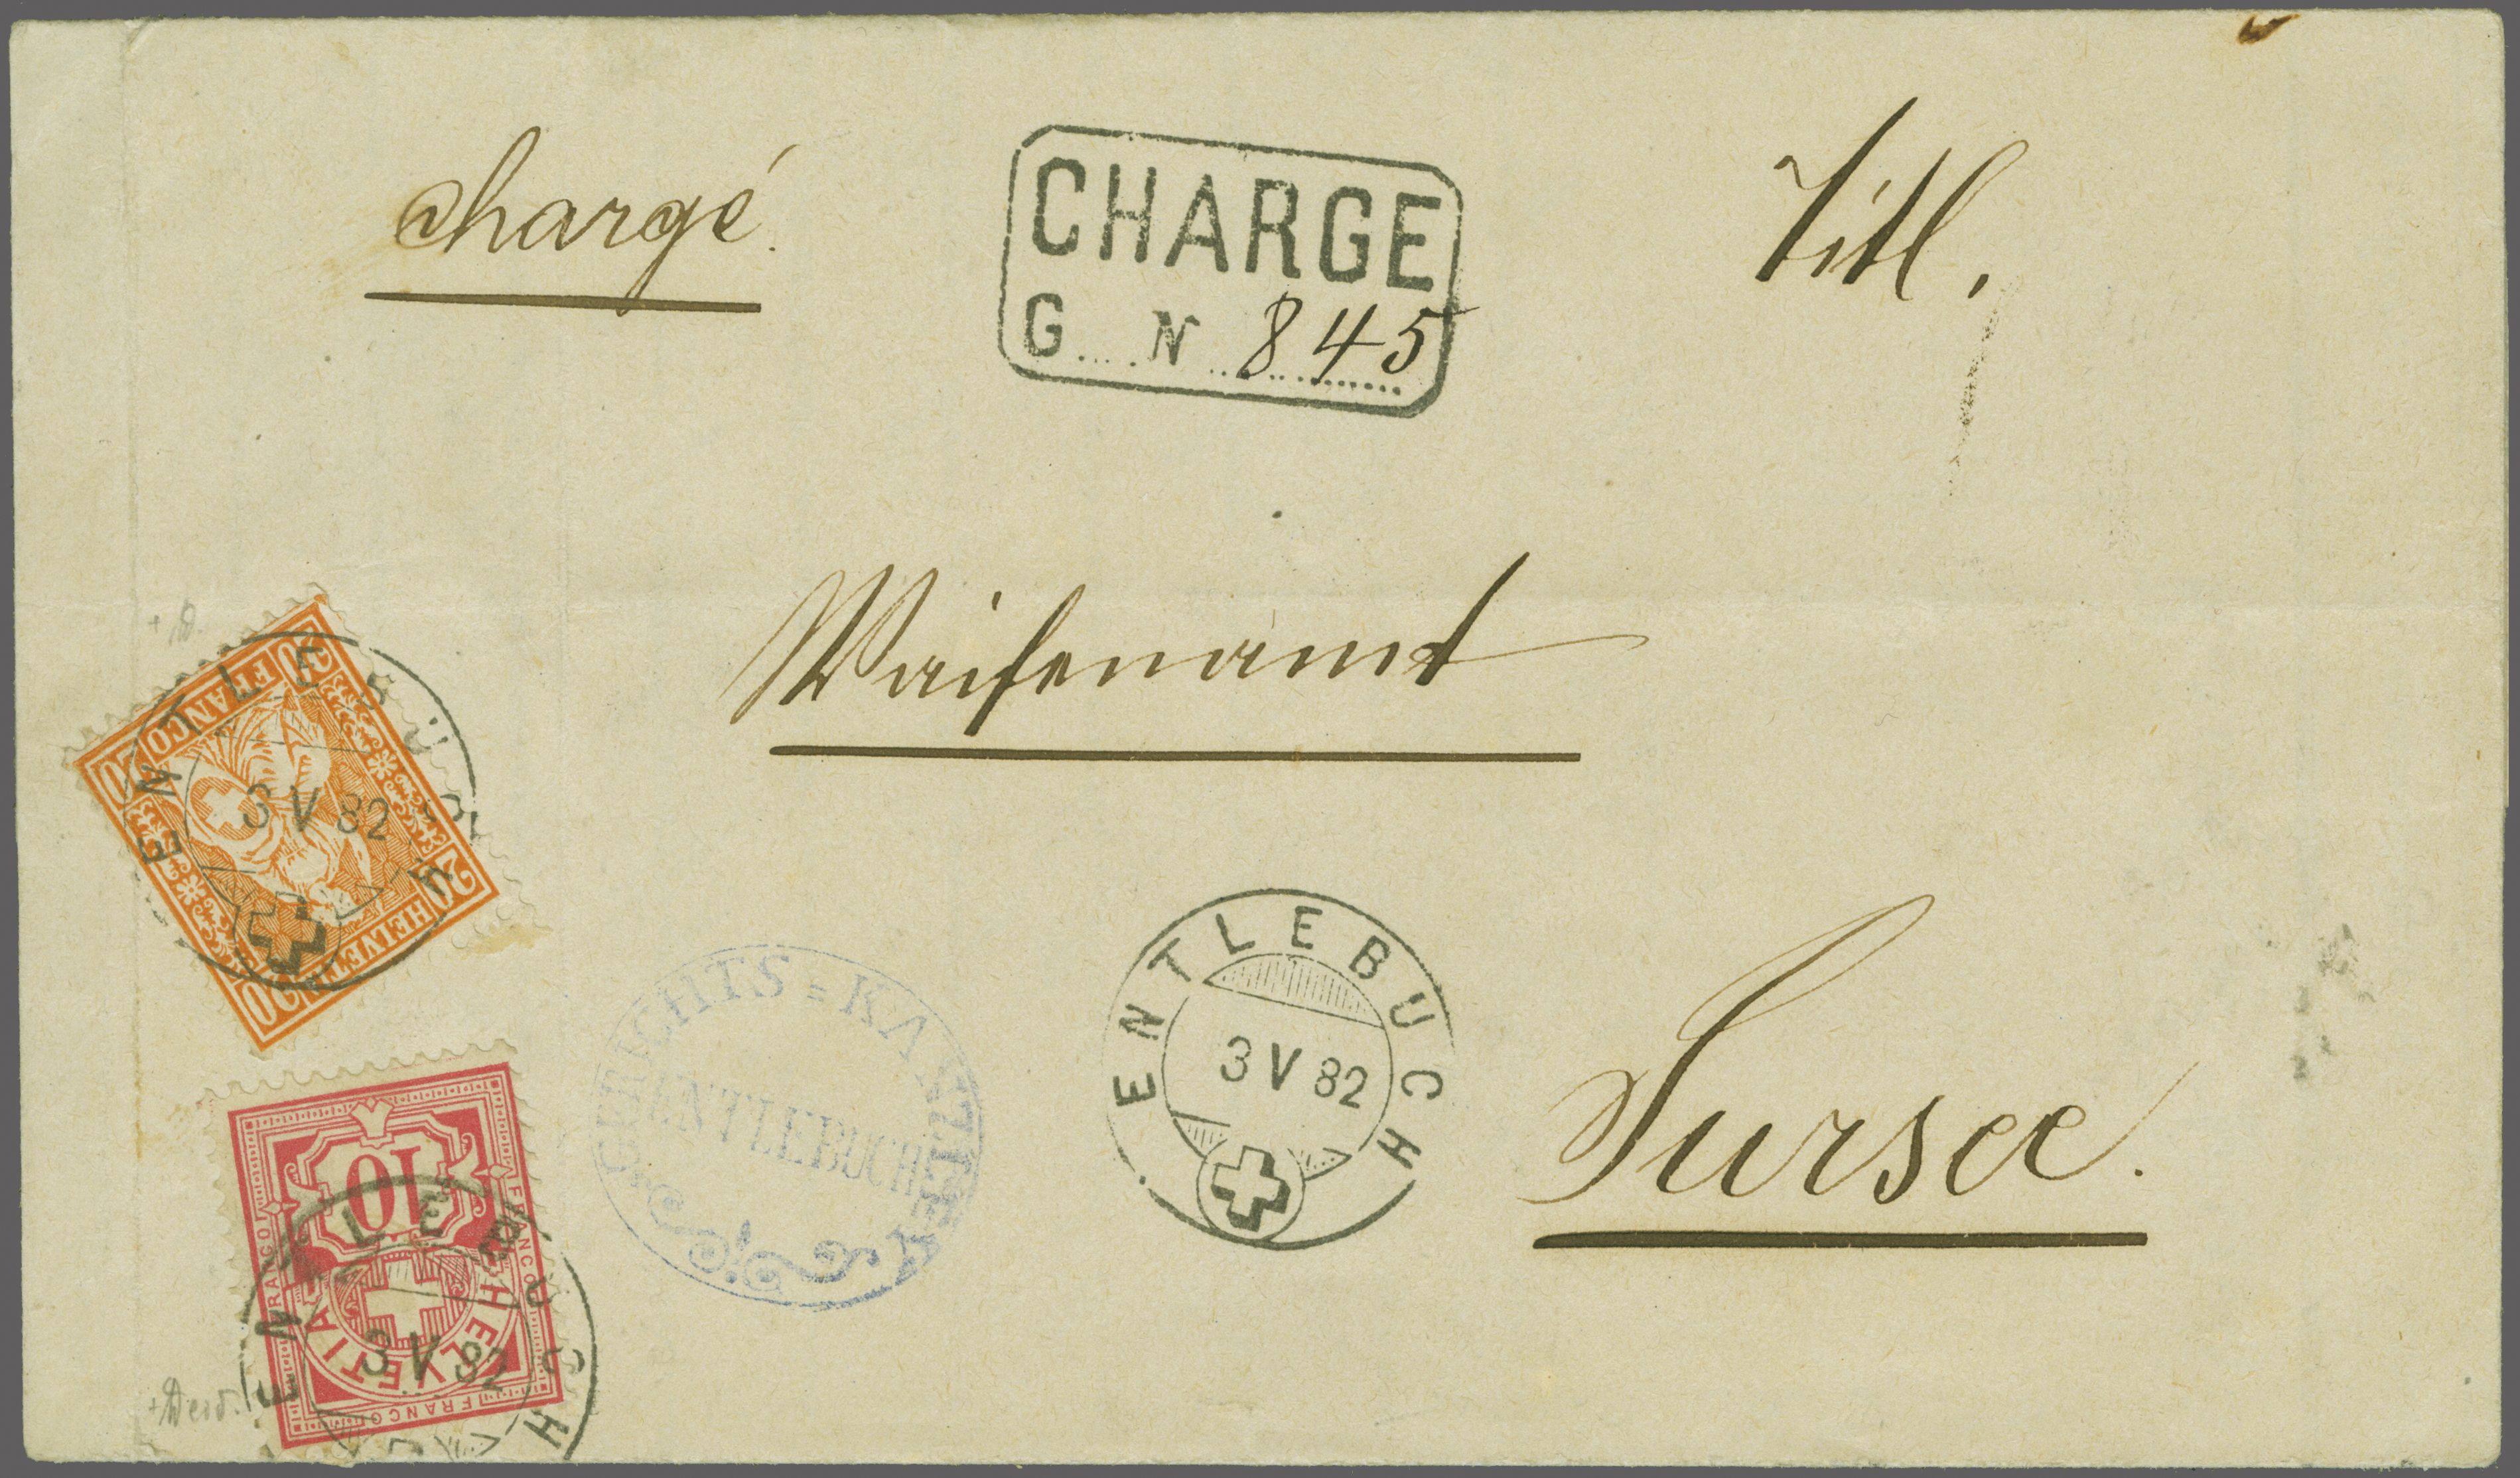 chargé.
CHARGE
G....N 845
Titl.
Waisenamt
Sursee.
ENTLEBUCH
3 V 82
GERICHTS=KANZLEI
ENTLEBUCH
20 FRANCO 20
20 HELVETIA 20
ENTLEBUCH
3 V 82
10
HELVETIA
FRANCO
FRANCO
FRANCO
ENTLEBUCH
3 V 82